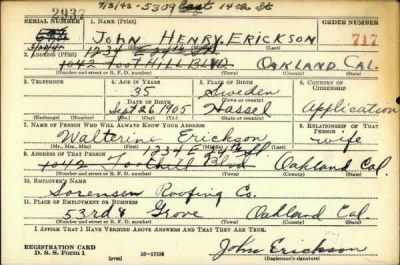 7/3/42 - 5309 East 14th St
2937
SERIAL NUMBER 1. NAME (Print) ORDER NUMBER
John Henry Erickson 717
(First) (Middle) (Last)
2. ADDRESS (Print) 1234 E 24th St
1042 Foothill Blvd Oakland Cal.
(Number and street or R. F. D. number) (Town) (County) (State)
3. TELEPHONE 4. AGE IN YEARS 5. PLACE OF BIRTH 6. COUNTRY OF CITIZENSHIP
35 Sweden
DATE OF BIRTH (Town or county)
Sept 26 1905 Hassel Application
(Exchange) (No.) (Mo.) (Day) (Yr.) (State or country)
7. NAME OF PERSON WHO WILL ALWAYS KNOW YOUR ADDRESS 8. RELATIONSHIP OF THAT PERSON
Walterine Erickson wife
(Mr., Mrs., Miss) (First) (Middle) (Last)
9. ADDRESS OF THAT PERSON 1234 E 24th St
1042 Foothill Blvd Oakland Cal.
(Number and street or R. F. D. number) (Town) (County) (State)
10. EMPLOYER'S NAME
Sorensen Roofing Co.
11. PLACE OF EMPLOYMENT OR BUSINESS
53rd & Grove Oakland Cal.
(Number and street or R. F. D. number) (Town) (County) (State)
I AFFIRM THAT I HAVE VERIFIED ABOVE ANSWERS AND THAT THEY ARE TRUE.
REGISTRATION CARD
D. S. S. Form 1 (over) 16-17105 John Erickson
(Registrant's signature)